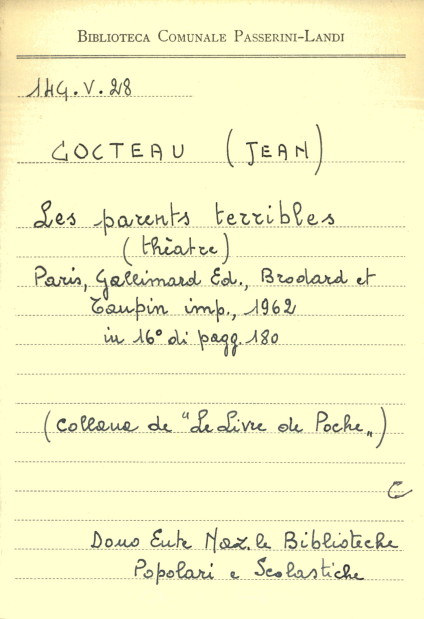 BIBLIOTECA COMUNALE PASSERINI-LANDI
14G.V.28
COCTEAU (JEAN)
Les parents terribles
(théatre)
Paris, Gallimard Ed., Brodard et
Taupin imp., 1962
in 16° di pagg. 180
(collana de "Le Livre de Poche„)
C
Dono Ente Naz.le Biblioteche
Popolari e Scolastiche